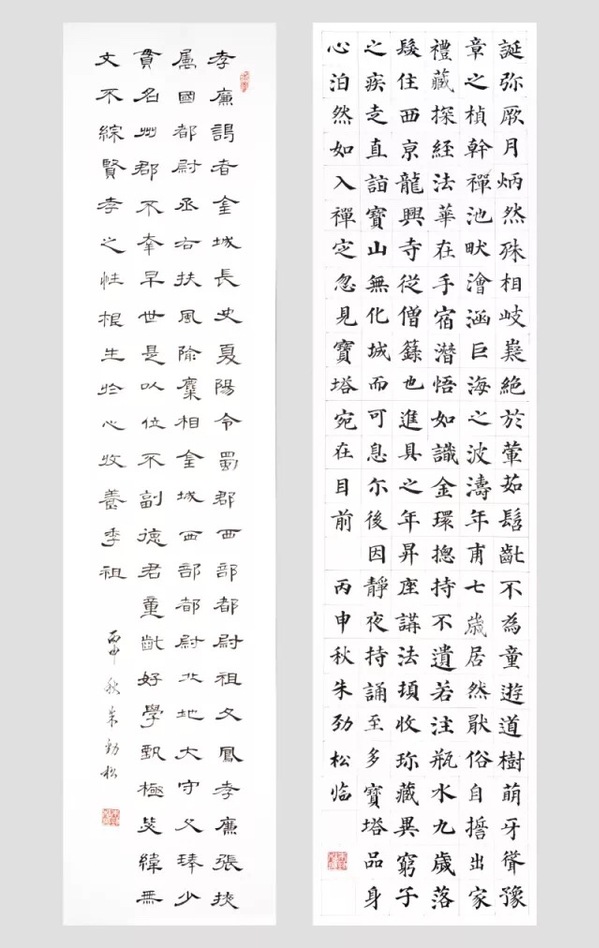 誕弥厥月炳然殊相岐嶷絕於葷茹髫齔不為童遊道樹萌牙聳豫
章之楨幹禪池畎澮涵巨海之波濤年甫七歲居然猒俗自誓出家
禮藏探經法華在手宿潛悟如識金環揔持不遺若注瓶水九歲落
髮住西京龍興寺從僧籙也進具之年昇座講法頃收珎藏異窮子
之疾走直詣寶山無化城而可息尒後因靜夜持誦至多寶塔品身
心泊然如入禪定忽見寶塔宛在目前 丙申秋朱勁松臨
孝廉謁者金城長史夏陽令蜀郡西部都尉祖父鳳孝廉張掖
屬國都尉丞右扶風隃麋相金城西部都尉北地大守父琫少
貫名州郡不幸早世是以位不副德君童齔好學甄極毖緯無
文不綜賢孝之性根生於心收養季祖
丙申秋朱勁松